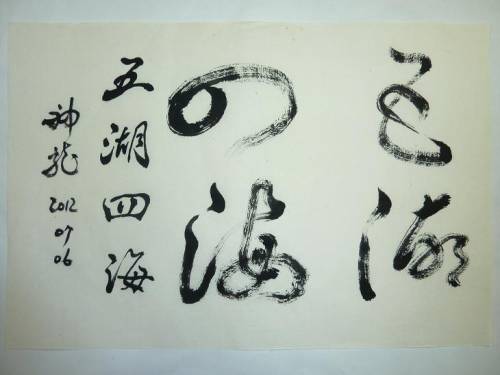 五湖
四海
五湖四海
神龙
2012
07
06